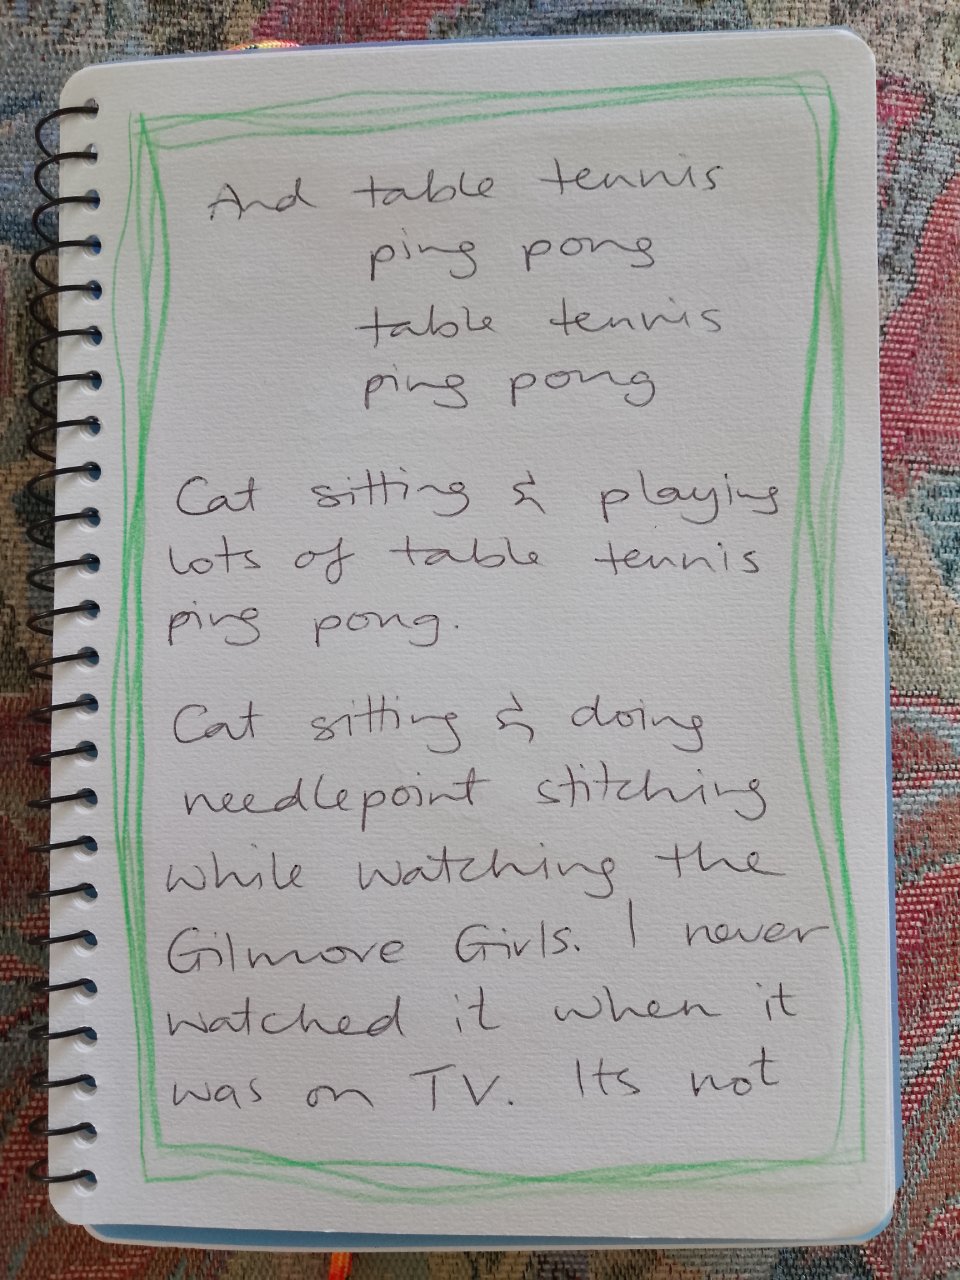 And table tennis
ping pong
table tennis
ping pong
Cat sitting & playing
lots of table tennis
ping pong.
Cat sitting & doing
needlepoint stitching
while watching the
Gilmore Girls. I never
watched it when it
was on TV. Its not